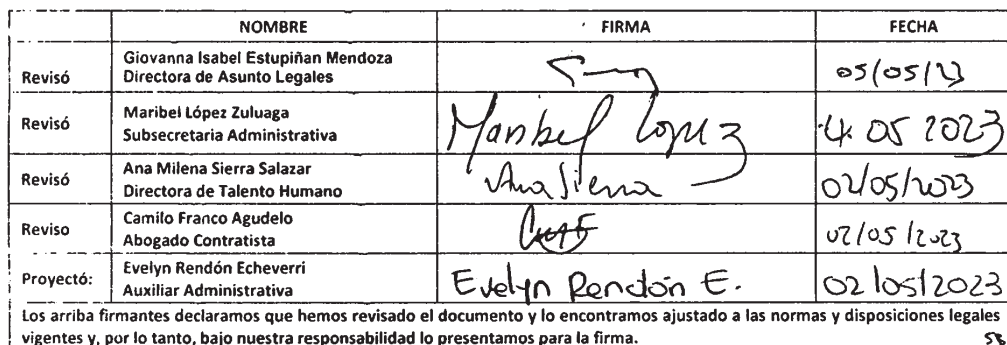 NOMBRE FIRMA FECHA
Revisó Giovanna Isabel Estupiñan Mendoza
Directora de Asunto Legales 05/05/23
Revisó Maribel López Zuluaga
Subsecretaria Administrativa Maribel López Z 4. 05 2023
Revisó Ana Milena Sierra Salazar
Directora de Talento Humano Ana Sierra 02/05/2023
Reviso Camilo Franco Agudelo
Abogado Contratista 02/05/2023
Proyectó: Evelyn Rendón Echeverri
Auxiliar Administrativa Evelyn Rendón E. 02/05/2023
Los arriba firmantes declaramos que hemos revisado el documento y lo encontramos ajustado a las normas y disposiciones legales
vigentes y, por lo tanto, bajo nuestra responsabilidad lo presentamos para la firma.